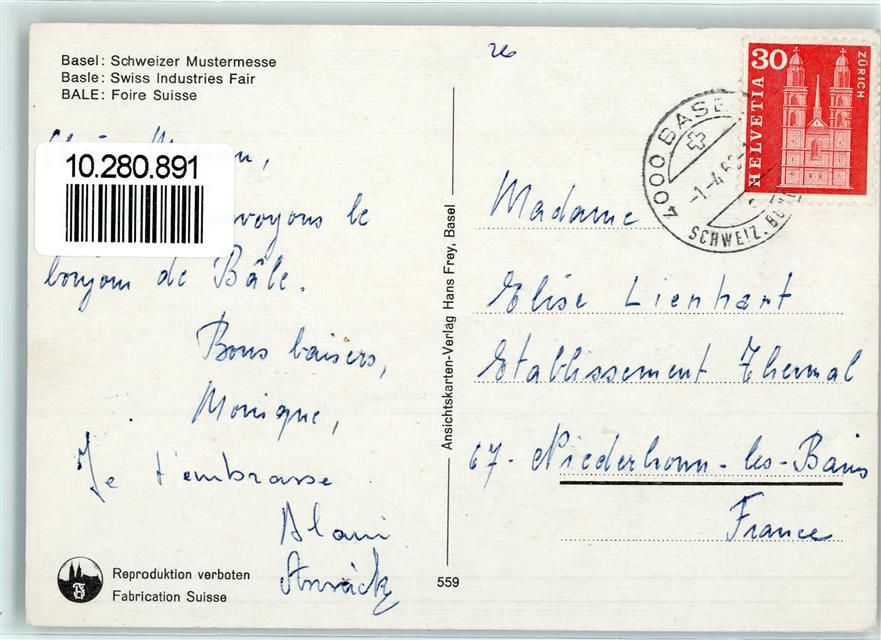 Basel: Schweizer Mustermesse
Basle: Swiss Industries Fair
BALE: Foire Suisse
10.280.891
voyons le
bonjour de Bâle.
Bons baisers,
Monique,
Je t'embrasse
Alain
Reproduktion verboten
Fabrication Suisse
Ansichtskarten-Verlag Hans Frey, Basel
559
26
4000 BASEL
SCHWEIZ.
30
HELVETIA
ZÜRICH
Madame
Elise Lienhart
Etablissement Thermal
67 - Niederbronn-les-Bains
France